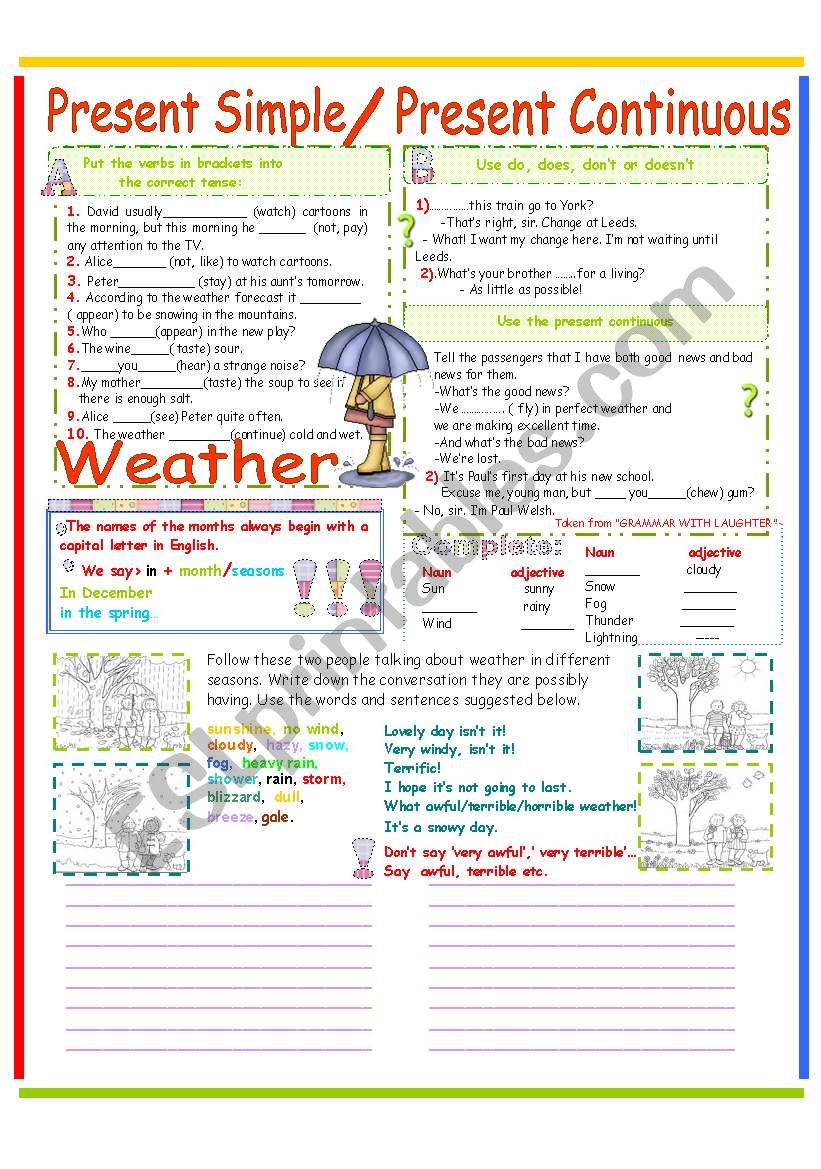 Present Simple/ Present Continuous
A
Put the verbs in brackets into
the correct tense:
1. David usually____________ (watch) cartoons in
the morning, but this morning he _______ (not, pay)
any attention to the TV.
2. Alice________ (not, like) to watch cartoons.
3. Peter___________ (stay) at his aunt's tomorrow.
4. According to the weather forecast it _________
( appear) to be snowing in the mountains.
5.Who _______(appear) in the new play?
6.The wine______( taste) sour.
7.______you______(hear) a strange noise?
8.My mother_________(taste) the soup to see if
there is enough salt.
9.Alice _____(see) Peter quite often.
10. The weather _________(continue) cold and wet.
B
Use do, does, don't or doesn't
1)..............this train go to York?
-That's right, sir. Change at Leeds.
- What! I want my change here. I'm not waiting until
Leeds.
2).What's your brother ........for a living?
- As little as possible!
?
Use the present continuous
Tell the passengers that I have both good news and bad
news for them.
-What's the good news?
-We ............... ( fly) in perfect weather and
we are making excellent time.
-And what's the bad news?
-We're lost.
?
2) It's Paul's first day at his new school.
Excuse me, young man, but _____ you______(chew) gum?
- No, sir. I'm Paul Welsh.
Taken from "GRAMMAR WITH LAUGHTER "
Weather
The names of the months always begin with a
capital letter in English.
We say> in + month/seasons
In December
in the spring…
!!!
Complete:
Naun adjective
Sun sunny
________ rainy
Wind ________
Naun adjective
________ cloudy
Snow ________
Fog ________
Thunder ________
Lightning -----
Follow these two people talking about weather in different
seasons. Write down the conversation they are possibly
having. Use the words and sentences suggested below.
sunshine, no wind,
cloudy, hazy, snow,
fog, heavy rain,
shower, rain, storm,
blizzard, dull,
breeze, gale.
Lovely day isn't it!
Very windy, isn't it!
Terrific!
I hope it's not going to last.
What awful/terrible/horrible weather!
It's a snowy day.
!
Don't say 'very awful',' very terrible'…
Say awful, terrible etc.
ESLprintables.com